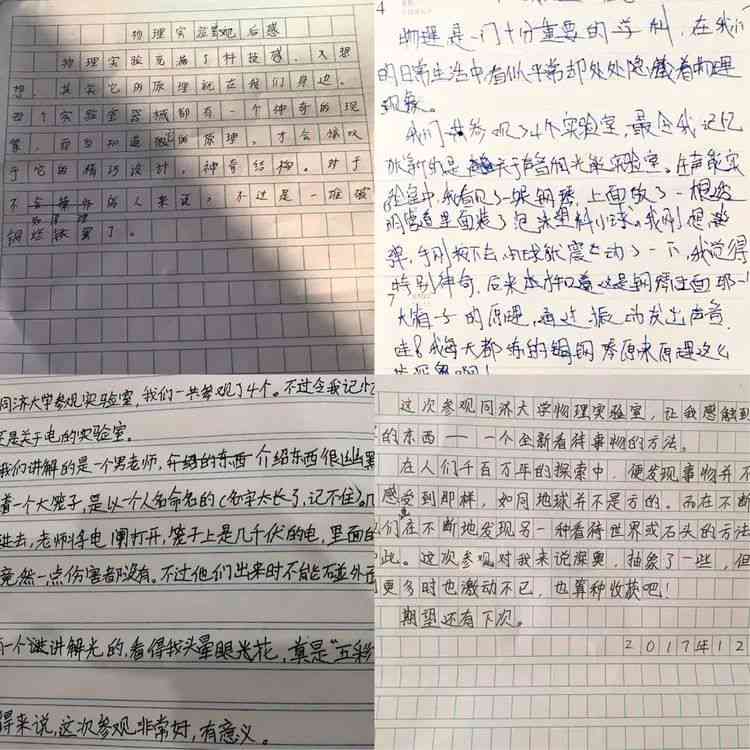 物理实验室观后感
物理实验充满了科技感,又想
想,其实它的原理就在我们身边。
四个实验室器械都有一个神奇的现
象,而当知道的原理,才会惊叹
于它的精巧设计,神奇结构。对于
不知原理的人来说,不过是一堆破
铜烂铁罢了。
4
物理是一门十分重要的学科,在我们
的日常生活中看似平常却处处隐藏着物理
现象。
我们一共参观了4个实验室,最令我记忆
犹新的是关于声音和光能实验室。在声能实
验室中,我看见了一架钢琴,上面放了一根透
明管道里面装了泡沫塑料小球。我刚想
弹,手刚按下去,小球就震动了一下,我觉得
特别神奇,后来才知道这是钢琴里面那一
大箱子的原理,通过振动发出声音
哇!我每天都练的钢琴原来原理这么
同济大学参观实验室,我们一共参观了4个。不过令我记忆
还是关于电的实验室。
我们讲解的是一个男老师,介绍的东西介绍东西很幽默
着一个大笼子,是以一个人名命名的(名字太长了,记不住)。
进去,老师将电闸打开,笼子上是几千伏的电,里面的
竟然一点伤害都没有。不过他们出来时不能碰外
一个讲解光的,看得我头晕眼花,真是“五彩
得来说,这次参观非常好,有意义。
这次参观同济大学物理实验室,让我感触到
的东西——一个全新看待事物的方法。
在人们千百万年的探索中,便发现事物并不
感受到那样,如同地球并不是方的。而在不断
们在不断地发现另一种看待世界或石头的方法
此。这次参观对我来说深奥,抽象了一些,但
更多时也激动不已,也算种收获吧!
期望还有下次。
2017年12